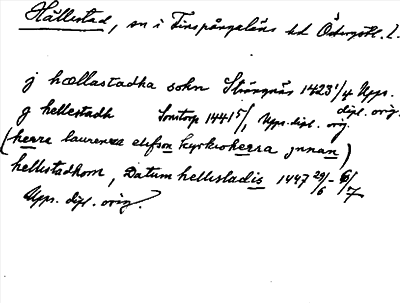 Hällestad, sn i Finspångaläns hd Östergötl. l.
j hællastadha sokn Strängnäs 1423 1/4 Upps. dipl. orig.
g hellestadh Sonstorp 1441 5/1 Upps. dipl. orig.
(herra laurenze olefson kyrkioherra jnnan)
hellestadhom, Datum hellestadis 1447 29/6 - 6/7
Upps. dipl. orig.